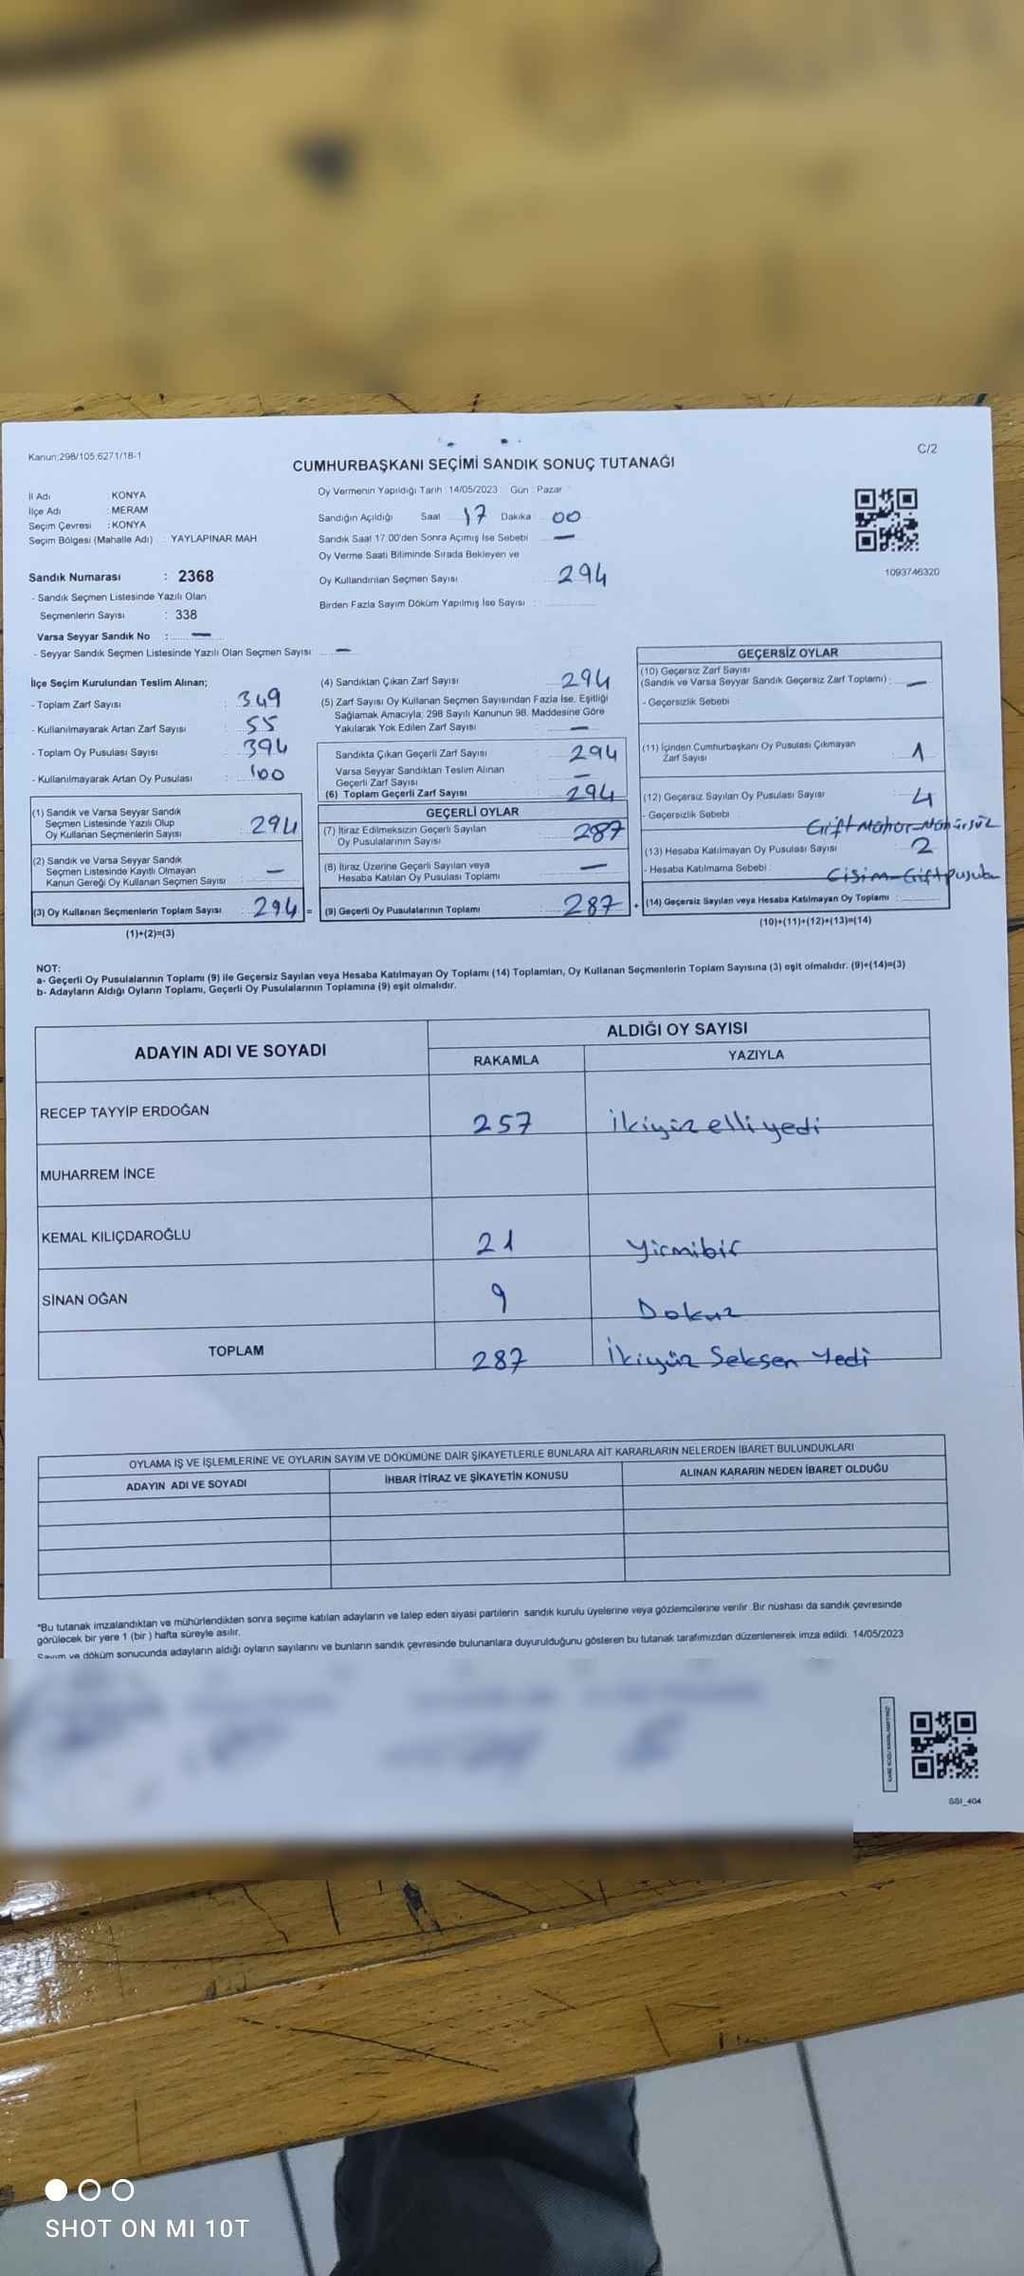 Kanun:298/105;6271/18-1
C/2
CUMHURBAŞKANI SEÇİMİ SANDIK SONUÇ TUTANAĞI
İl Adı : KONYA
İlçe Adı : MERAM
Seçim Çevresi : KONYA
Seçim Bölgesi (Mahalle Adı) : YAYLAPINAR MAH
Sandık Numarası : 2368
- Sandık Seçmen Listesinde Yazılı Olan
Seçmenlerin Sayısı : 338
Varsa Seyyar Sandık No : —
- Seyyar Sandık Seçmen Listesinde Yazılı Olan Seçmen Sayısı —
Oy Vermenin Yapıldığı Tarih : 14/05/2023 Gün : Pazar
Sandığın Açıldığı Saat 17 Dakika 00
Sandık Saat 17.00'den Sonra Açılmış İse Sebebi —
Oy Verme Saati Bitiminde Sırada Bekleyen ve
Oy Kullandırılan Seçmen Sayısı 294
Birden Fazla Sayım Döküm Yapılmış İse Sayısı :
1093746320
İlçe Seçim Kurulundan Teslim Alınan;
- Toplam Zarf Sayısı : 349
- Kullanılmayarak Artan Zarf Sayısı : 55
- Toplam Oy Pusulası Sayısı : 394
- Kullanılmayarak Artan Oy Pusulası : 100
(1) Sandık ve Varsa Seyyar Sandık
Seçmen Listesinde Yazılı Olup
Oy Kullanan Seçmenlerin Sayısı 294
(2) Sandık ve Varsa Seyyar Sandık
Seçmen Listesinde Kayıtlı Olmayan
Kanun Gereği Oy Kullanan Seçmen Sayısı —
(3) Oy Kullanan Seçmenlerin Toplam Sayısı 294 =
(1)+(2)=(3)
(4) Sandıktan Çıkan Zarf Sayısı 294
(5) Zarf Sayısı Oy Kullanan Seçmen Sayısından Fazla İse, Eşitliği
Sağlamak Amacıyla, 298 Sayılı Kanunun 98. Maddesine Göre
Yakılarak Yok Edilen Zarf Sayısı —
Sandıkta Çıkan Geçerli Zarf Sayısı 294
Varsa Seyyar Sandıktan Teslim Alınan
Geçerli Zarf Sayısı —
(6) Toplam Geçerli Zarf Sayısı 294
GEÇERLİ OYLAR
(7) İtiraz Edilmeksizin Geçerli Sayılan
Oy Pusulalarının Sayısı 287
(8) İtiraz Üzerine Geçerli Sayılan veya
Hesaba Katılan Oy Pusulası Toplamı —
(9) Geçerli Oy Pusulalarının Toplamı 287 +
GEÇERSİZ OYLAR
(10) Geçersiz Zarf Sayısı
(Sandık ve Varsa Seyyar Sandık Geçersiz Zarf Toplamı) : —
- Geçersizlik Sebebi
(11) İçinden Cumhurbaşkanı Oy Pusulası Çıkmayan
Zarf Sayısı 1
(12) Geçersiz Sayılan Oy Pusulası Sayısı 4
- Geçersizlik Sebebi
(13) Hesaba Katılmayan Oy Pusulası Sayısı 2
- Hesaba Katılmama Sebebi
(14) Geçersiz Sayılan veya Hesaba Katılmayan Oy Toplamı :
(10)+(11)+(12)+(13)=(14)
NOT:
a- Geçerli Oy Pusulalarının Toplamı (9) ile Geçersiz Sayılan veya Hesaba Katılmayan Oy Toplamı (14) Toplamları, Oy Kullanan Seçmenlerin Toplam Sayısına (3) eşit olmalıdır. (9)+(14)=(3)
b- Adayların Aldığı Oyların Toplamı, Geçerli Oy Pusulalarının Toplamına (9) eşit olmalıdır.
ADAYIN ADI VE SOYADI
ALDIĞI OY SAYISI
RAKAMLA YAZIYLA
RECEP TAYYİP ERDOĞAN 257 İkiyüz elli yedi
MUHARREM İNCE
KEMAL KILIÇDAROĞLU 21 Yirmibir
SİNAN OĞAN 9 Dokuz
TOPLAM 287 İkiyüz Seksen Yedi
OYLAMA İŞ VE İŞLEMLERİNE VE OYLARIN SAYIM VE DÖKÜMÜNE DAİR ŞİKAYETLERLE BUNLARA AİT KARARLARIN NELERDEN İBARET BULUNDUKLARI
ADAYIN ADI VE SOYADI İHBAR İTİRAZ VE ŞİKAYETİN KONUSU ALINAN KARARIN NEDEN İBARET OLDUĞU
"Bu tutanak imzalandıktan ve mühürlendikten sonra seçime katılan adayların ve talep eden siyasi partilerin sandık kurulu üyelerine veya gözlemcilerine verilir. Bir nüshası da sandık çevresinde
görülecek bir yere 1 (bir ) hafta süreyle asılır.
Sayım ve döküm sonucunda adayların aldığı oyların sayılarını ve bunların sandık çevresinde bulunanlara duyurulduğunu gösteren bu tutanak tarafımızdan düzenlenerek imza edildi. 14/05/2023
SSI_404
SHOT ON MI 10T